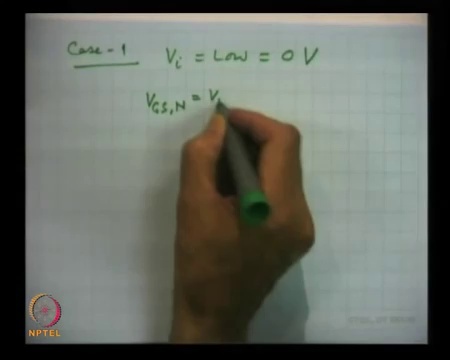 Case-1 Vi = Low = 0 V
VGS,N = V
NPTEL